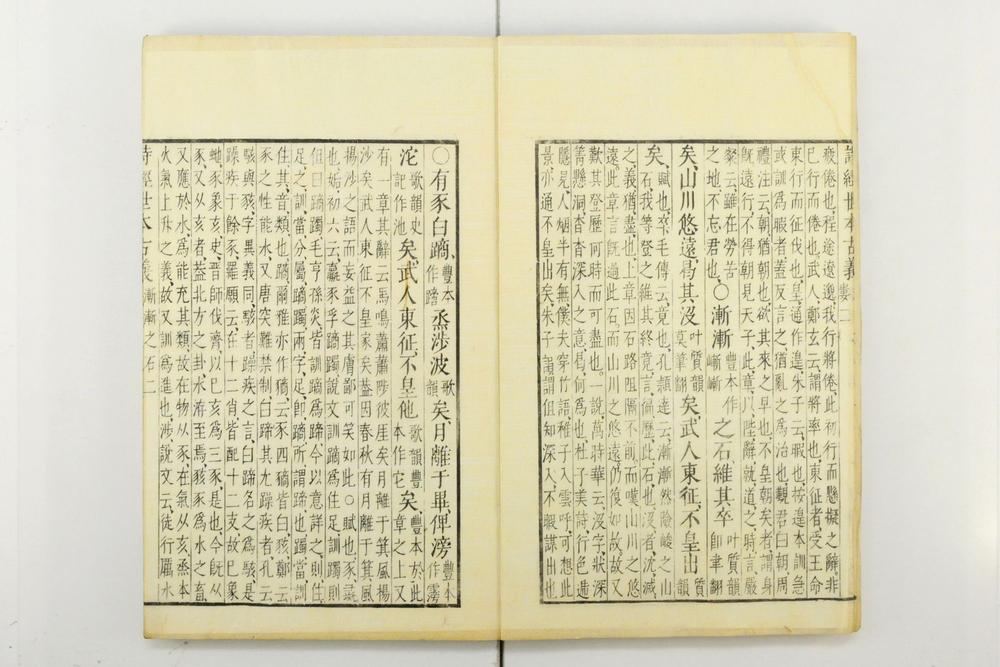 詩經世本古義
疲倦也程途遼邈我行將倦此初行而懸擬之辭非
已行而倦也武人鄭玄云謂將率也東征者受王命
東行而征伐也皇通作遑朱子云暇也按遑本訓急
或訓為暇者蓋反言之猶亂之為治也覲君曰朝周
禮注云朝猶朝也欲其來之早也不皇朝矣者謂身
既遠行不得朝見天子此章川陛辭就道之時言嚴
粲云雖在勞苦叶質韻
之地不忘君也○漸漸豐本作嶄嶄之石維其卒叶質韻即聿翻
矣山川悠遠曷其沒叶質韻莫筆翻矣武人東征不皇出質韻
矣賦也卒毛傳云竟也孔穎達云漸漸然險峻之山
石我等登之維其終竟言徧歷此石也沒者沈滅
之義猶盡也上章因石路阻隔不前而嘆山川之又
遠此章言既過此石而山川之悠遠仍復如故故又
歎其登歷何時而可盡也一說萬時華云沒字狀深
箐懸洞杳杳深入人之意曷何為也杜子美詩行色遞
隱見人烟半有無僕夫穿竹語稚子入雲呼可想此
景亦通不皇出矣朱子謂謂但知深入不暇謀出也
○有豕白蹢豐本作蹄烝涉波歌韻矣月離于畢俾滂豐本作霶
沱歌韻史記作池矣武人東征不皇他歌韻豐本作它矣豐本於此章之上又
有一章其辭云馬鳴蕭蕭陟彼崖矣月離于箕風揚
沙矣武人東征不皇家矣蓋因春秋有月離于箕風
揚沙之語而妄益之其膚鄙可笑如此○賦也豕彘
也姤初六云羸豕孚蹢躅說文訓蹢為住足訓躅則
但曰蹢躅毛亨孫炎皆訓蹢為蹄今以意詳之則住
足之訓當分屬蹢躅兩字足即蹢所謂蹄也躅當訓
住其音類也蹢爾雅亦作豴云豕四豴皆白豥鄭云
豕之性能水又唐突難禁制白蹄其尤躁疾者孔云
駭與豥字異義同駭者躁疾之言白蹄名之為駭是
躁疾于餘豕羅願云在十二肖皆配十二支故巳象
虵豕象亥史晉師伐濟以巳亥為三豕是也今既从
豕又从亥者蓋北方之卦水洊至焉豥豕為水之畜
又應於水為能充其類故在物从豕在氣从亥烝本
火氣上升之義故又訓為進也涉說文云徒行厲水
詩經世本古義漸漸之石二